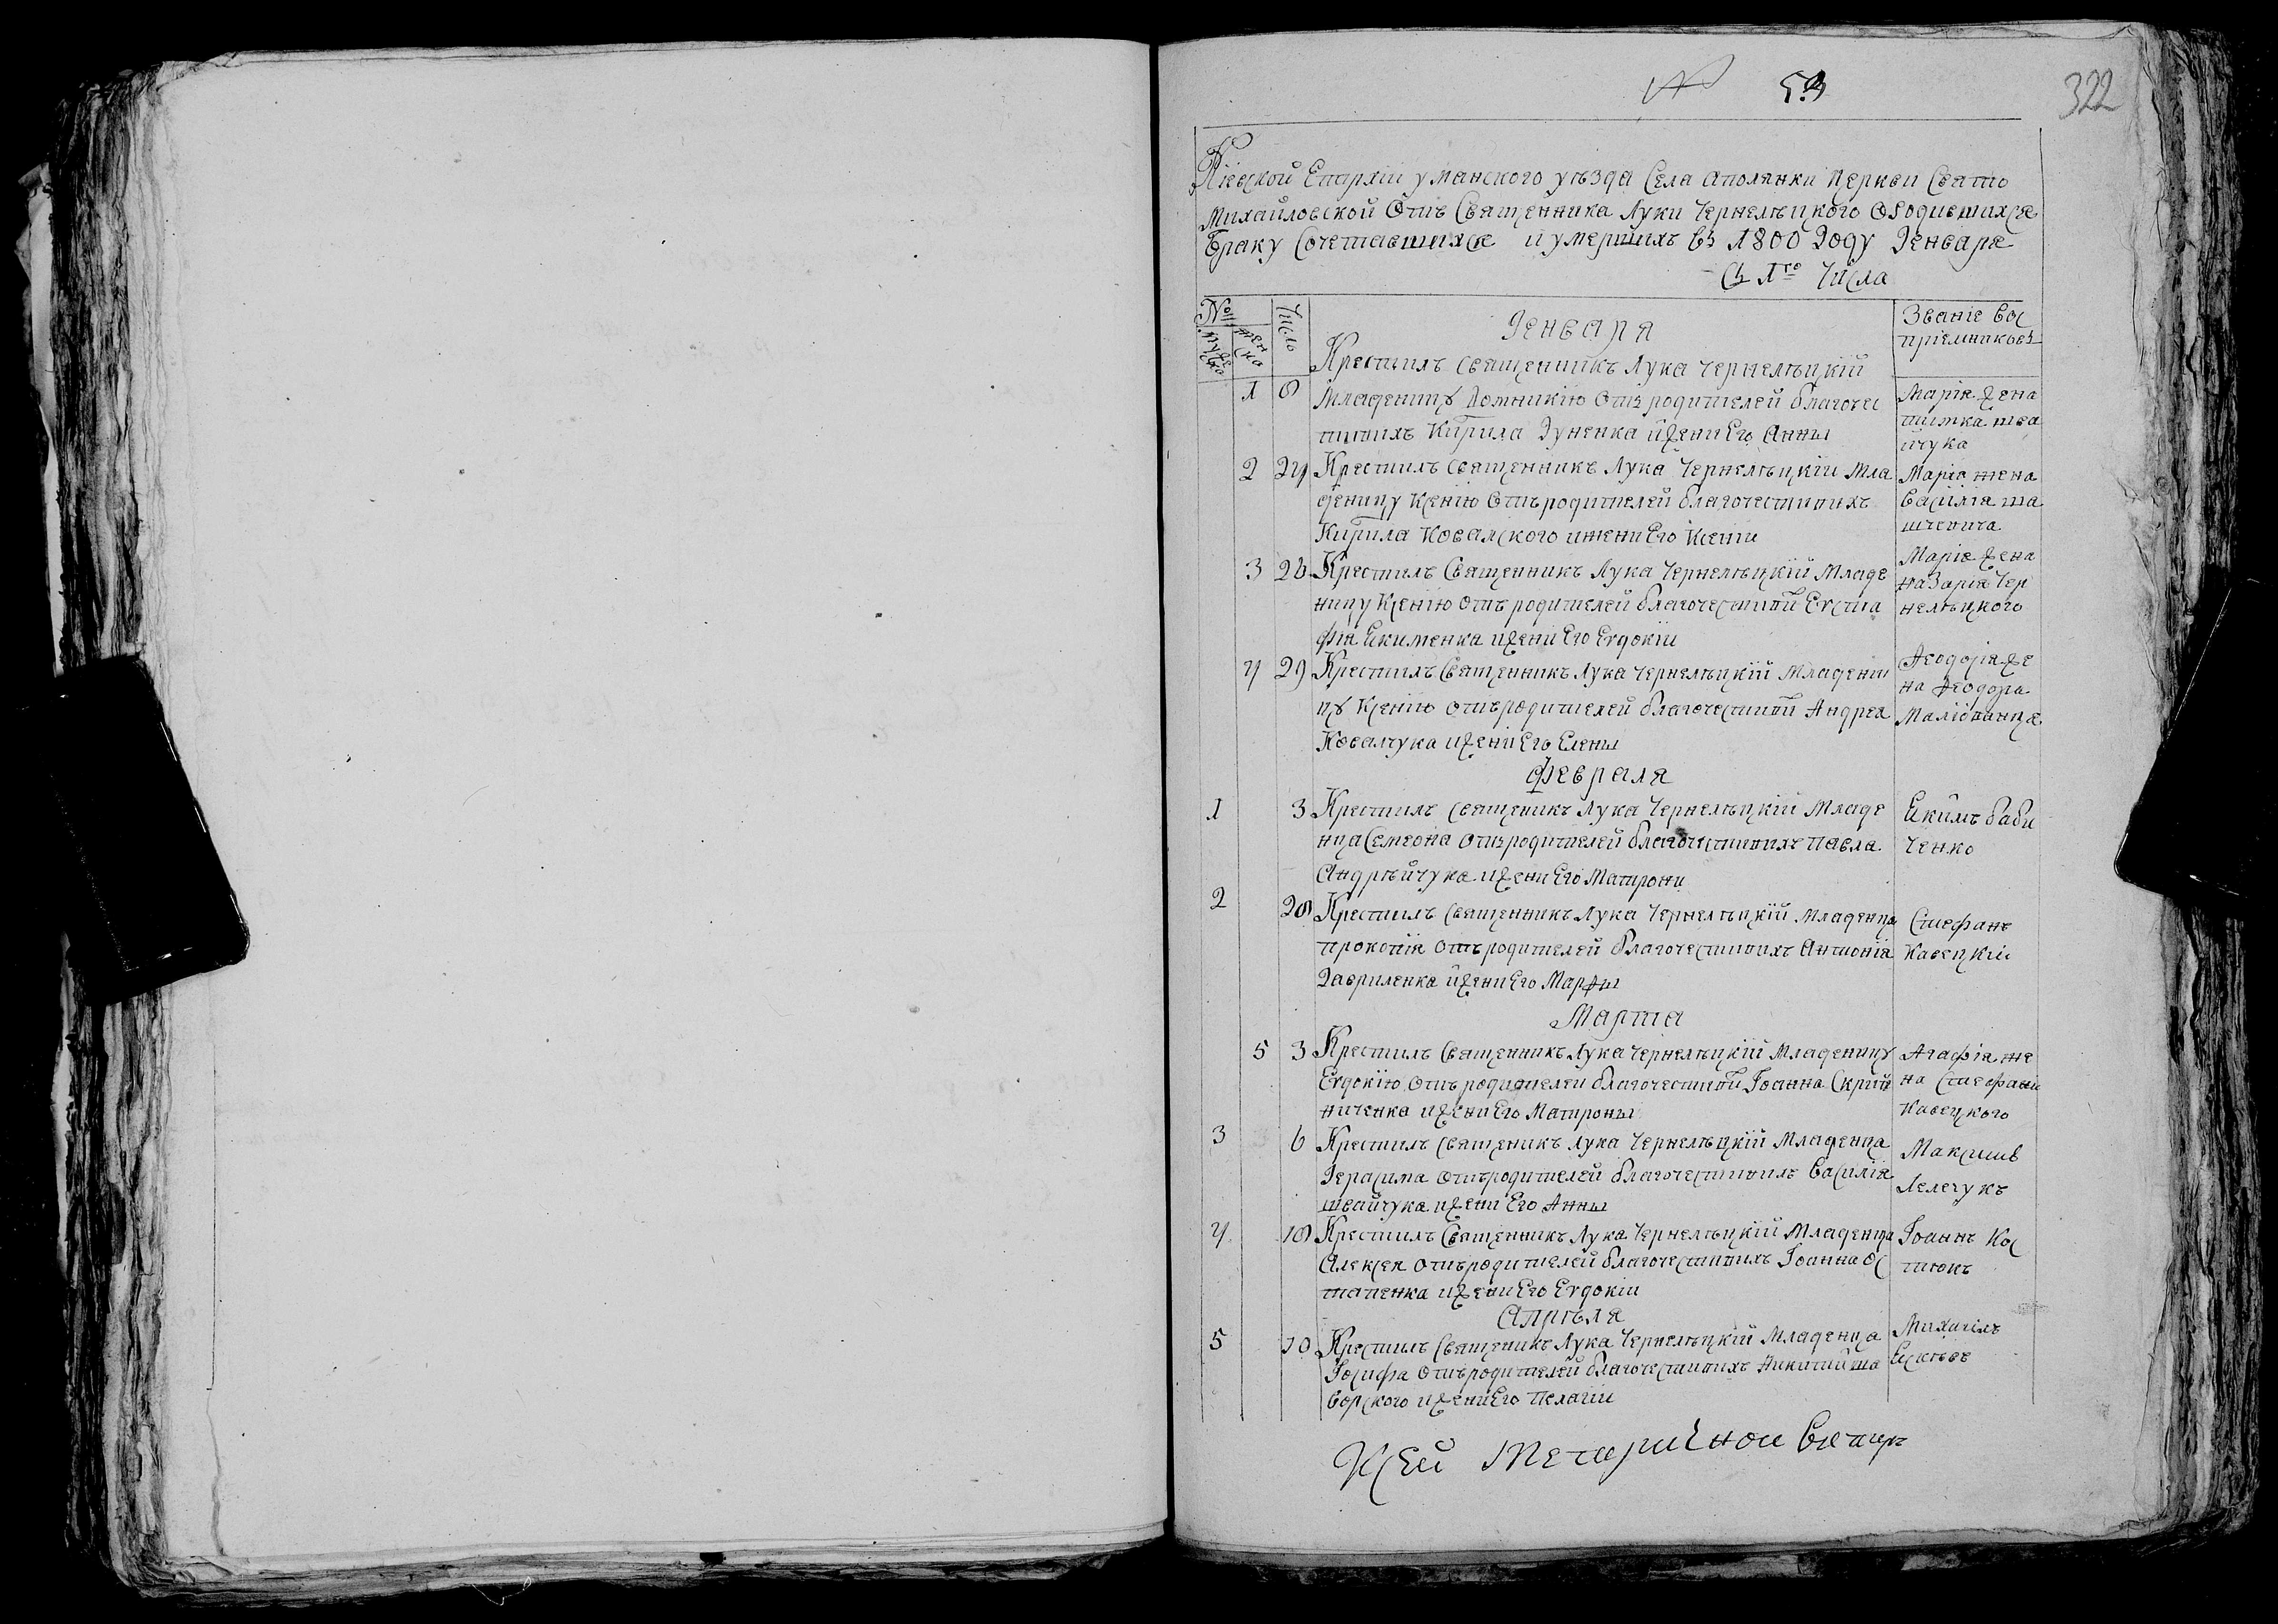 № 53
322
Кіевской Епархіи уманского уѣзда Села Аполянки церкви Свято
Михайловской Отъ Священника Луки Чернелѣцкого О Родившихся
браку Сочетавшихся и умершихъ въ 1800 Году Генваря
Съ 1го Числа
№
муже ска
жен ска
Число
Генваря
Званіе вос
пріемниковъ
Крестилъ священникъ Лука Чернелѣцкій
1 8 Младеницу Домникію Отъ родителей благочес
тивихъ Кирила Гуненка и жени Его Анны
Марія жена
тимка шва
йчука
2 24 Крестилъ священникъ Лука Чернелѣцкіи Мла
деницу Ксенію Отъ родителей благочестивихъ
Кирила Ковалского и жени Его Ксении
Марія жена
Василія ша
3 26 Крестилъ Священникъ Лука Чернелѣцкій Младе
ницу Ксенію отъ родителей благочестивй Евста
фія Екименка и жени Его Евдокіи
Марія жена
Назарія Чер
нелѣцкого
4 29 Крестилъ Священникъ Лука Чернелѣцкій Младени
цу Ксенію отъ родителей благочестивй Андрея
Ковалчука и жени Его Елены
Ѳеодорія же
на Ѳеодора
Маліованця
Февраля
1 3 Крестилъ священикъ Лука Чернелѣцкій Младе
нца Семеона Отъ родителей благочестивихъ Павла
Андрѣйчука и жени Его Матрони
Екимъ баби
ченко
2 28 Крестилъ священникъ Лука Чернелѣцкій Младенца
Прокопія отъ родителей благочестивихъ Антонія
Гавриленка и жени Его Марфы
Стефанъ
Кавецкій
Марта
5 3 Крестилъ Священникъ Лука Чернелѣцкій Младеницу
Евдокію Отъ родителей благочестивй Іоанна Скрип
ниченка и жени Его Матроны
Агафія же
на Стефана
Кавецкого
3 6 Крестилъ священикъ Лука Чернелѣцкій Младенца
Герасима отъ родителей благочестивихъ Василія
швайчука и жени Его Анны
Максимъ
Лелечукъ
4 18 Крестилъ Священникъ Лука Чернелѣцкій Младенца
Алексея отъ родителей благочестивихъ Іоанна Ос
тапенка и жени Его Евдокіи
Іоаннъ Кос
тюкъ
Апрѣля
5 10 Крестилъ Священикъ Лука Чернелѣцкій Младенца
Іосифа Отъ родителей благочестивихъ Никити ша
ворского и жени Его Пелагіи
Михаилъ
Ксей Метиричнои